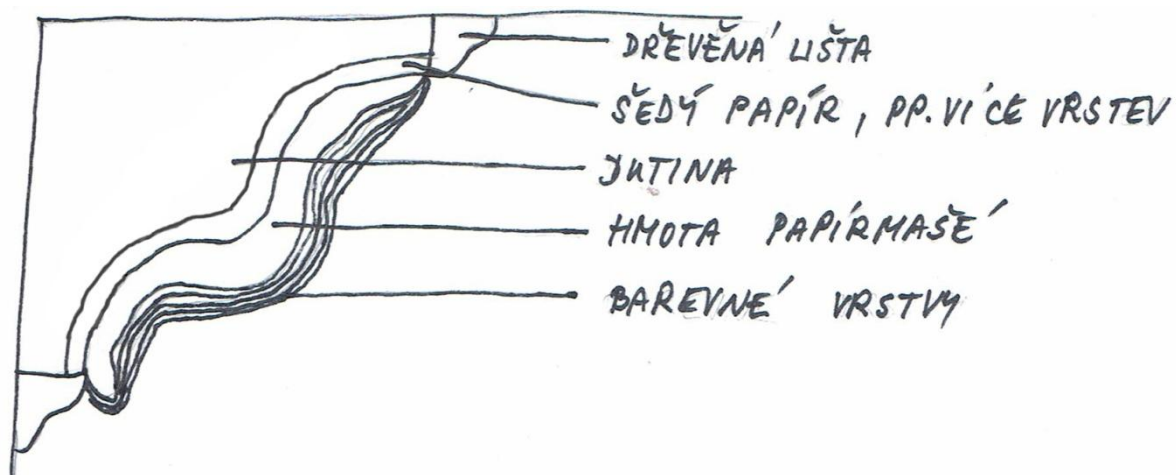 DŘEVĚNÁ LIŠTA
ŠEDÝ PAPÍR, PP. VÍCE VRSTEV
DUTINA
HMOTA PAPÍRMAŠÉ
BAREVNÉ VRSTVY